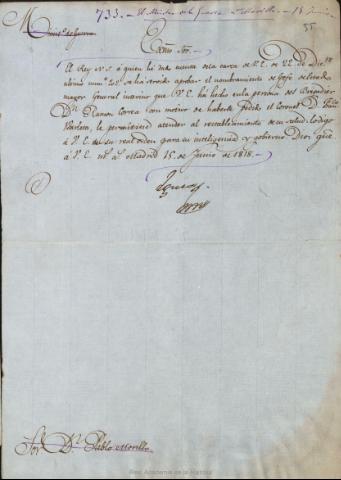 733. El Ministro de la Guerra. Madrid 15 Junio
55
Minist.º de Guerra
Exmo Sor.
El Rey N. S. á quien hé dado cuenta de la carta de V. E. de 22 de Dic.re
ultimo num.º se ha servido aprobar el nombramiento de Gefe de Estado
mayor General interino que V. E. ha hecho en la persona del Brigadier
D.n Ramon Correa con motivo de haberle pedido el Coronel D.n
le permitiese atender al restablecimiento de su salud. Lo digo
á V. E. de su real orden para su inteligencia y gobierno. Dios gue
á V. E. m.s a.s Madrid 15 de Junio de 1818.
Eguia
Sor. D.n Pablo Morillo
Real Academia de la Historia